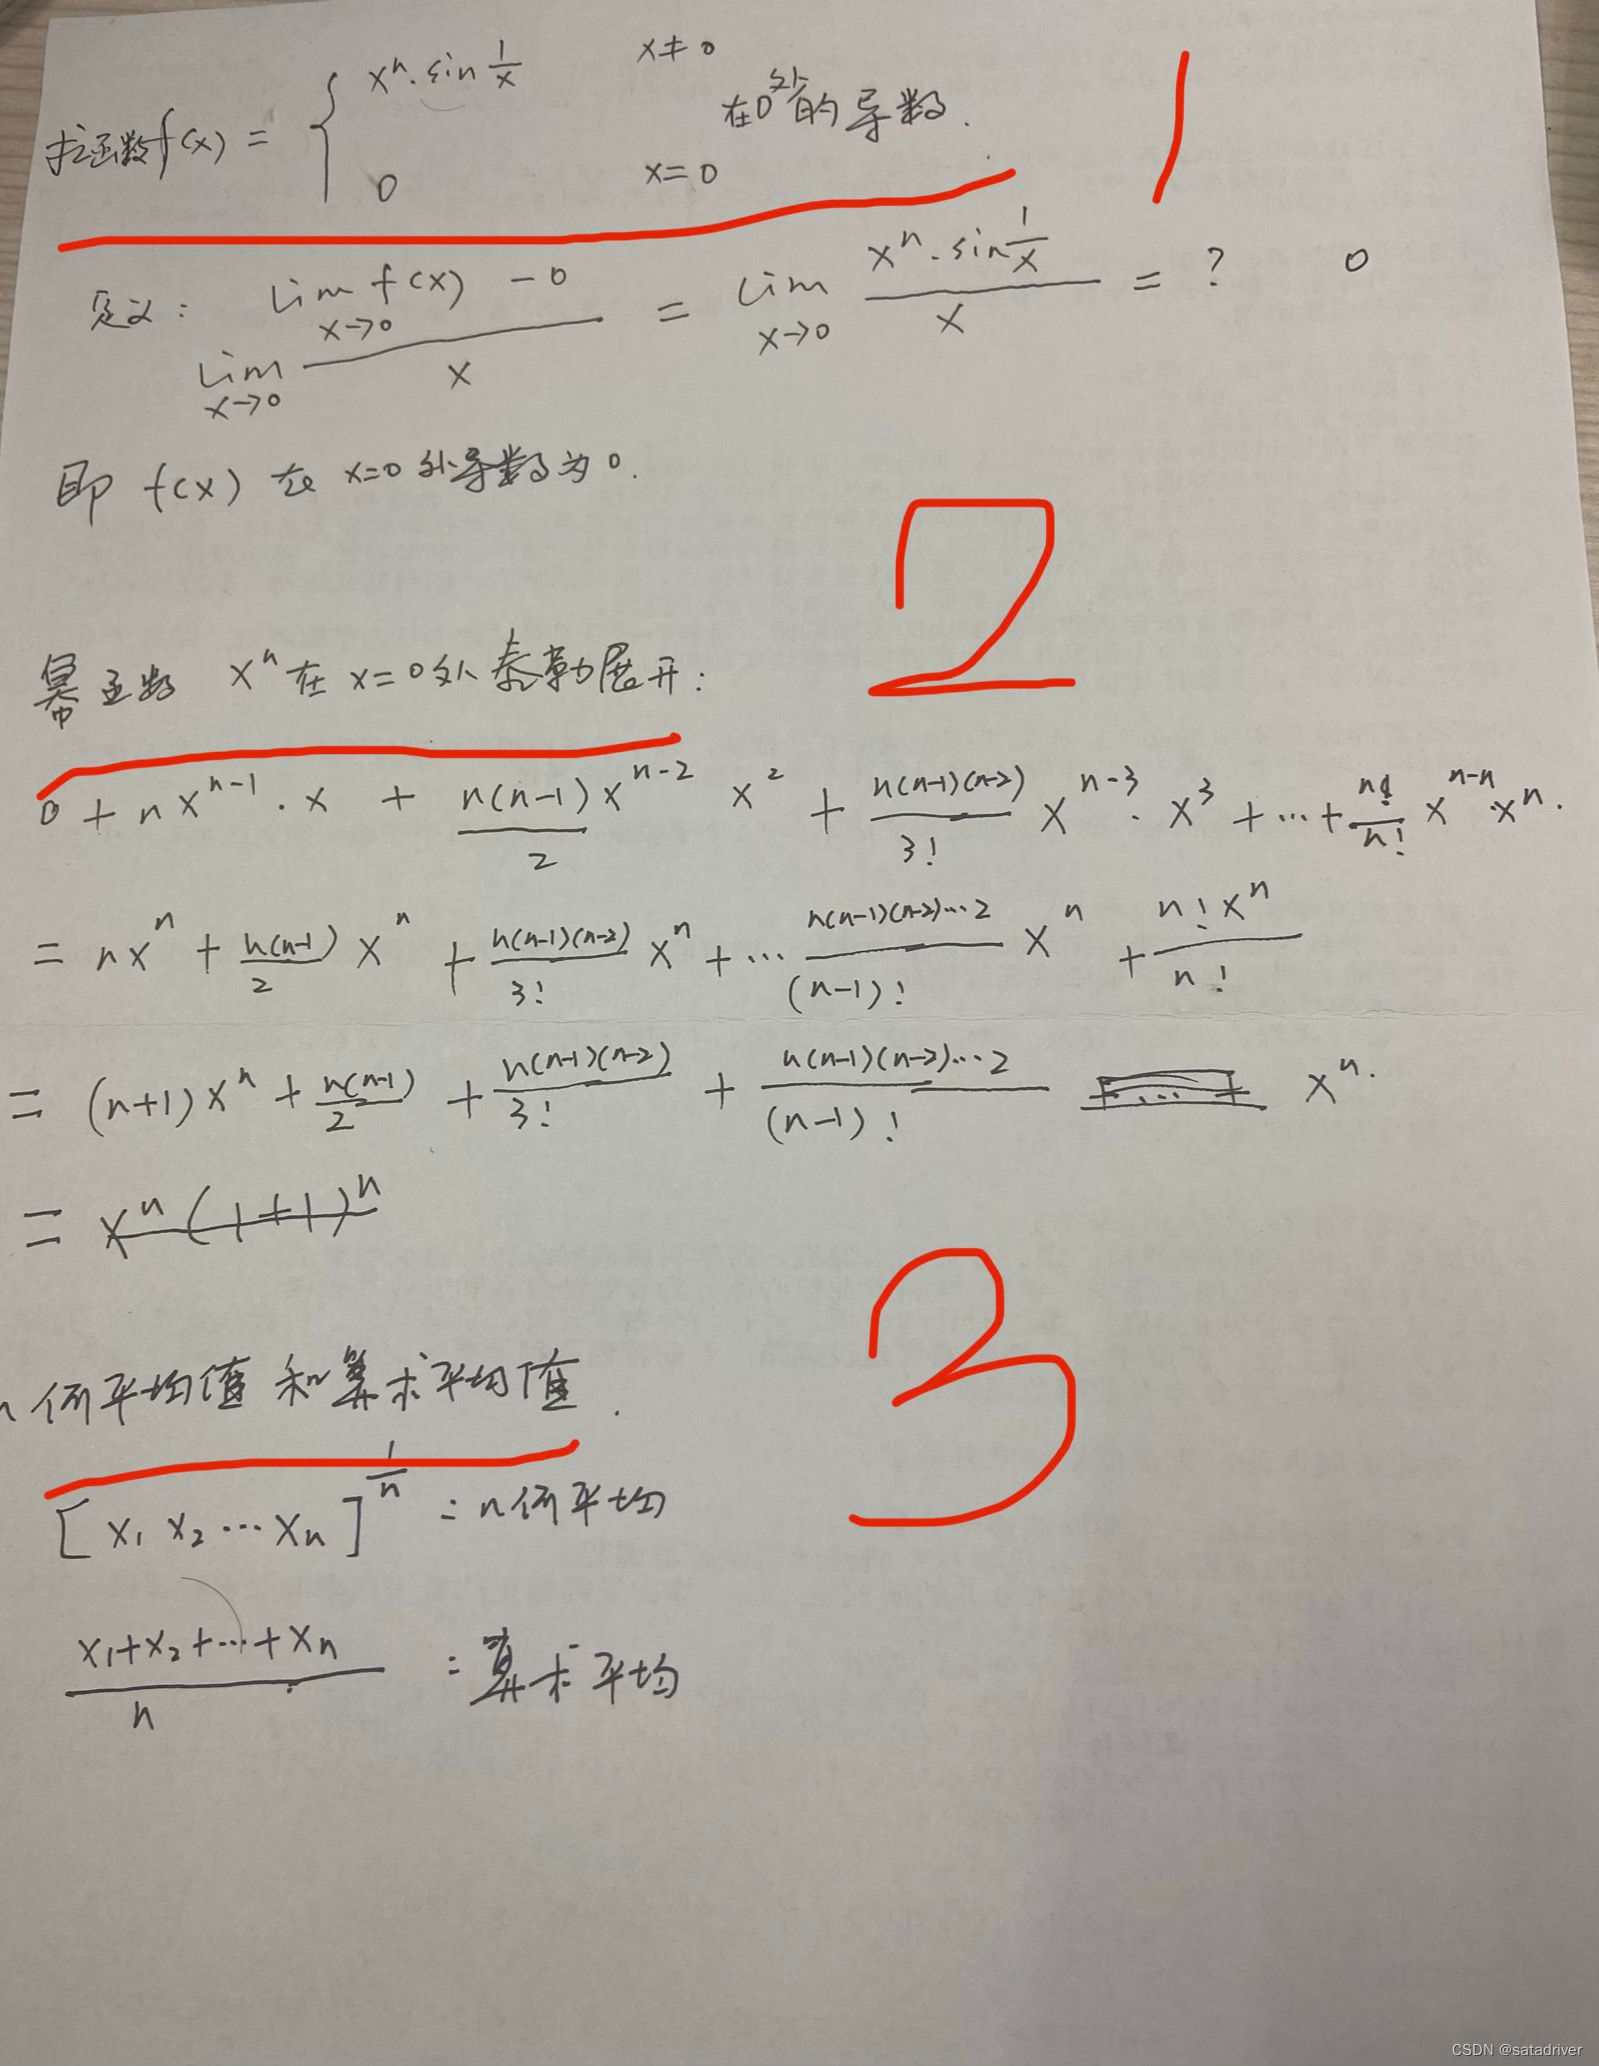 求函数f(x) = { xⁿ·sin 1/x   x≠0
0   x=0   在0处的导数.
1
定义: lim x→0 (lim x→0 f(x) - 0)/x = lim x→0 (xⁿ·sin 1/x)/x = ?   0
即 f(x) 在 x=0处导数为0.
2
幂函数 xⁿ在x=0处泰勒展开:
0 + nxⁿ⁻¹·x + n(n-1)/2 xⁿ⁻² x² + n(n-1)(n-2)/3! xⁿ⁻³·x³ + ... + n!/n! xⁿ⁻ⁿ·xⁿ.
= nxⁿ + n(n-1)/2 xⁿ + n(n-1)(n-2)/3! xⁿ + ... n(n-1)(n-2)...2/(n-1)! xⁿ + n!xⁿ/n!
= (n+1)xⁿ + n(n-1)/2 + n(n-1)(n-2)/3! + n(n-1)(n-2)...2/(n-1)! xⁿ.
= xⁿ(1+1)ⁿ
3
平均值和算术平均值.
[x₁ x₂ ... xₙ]^(1/n) : 平均
(x₁+x₂+...+xₙ)/n : 算术平均
CSDN @satadriver